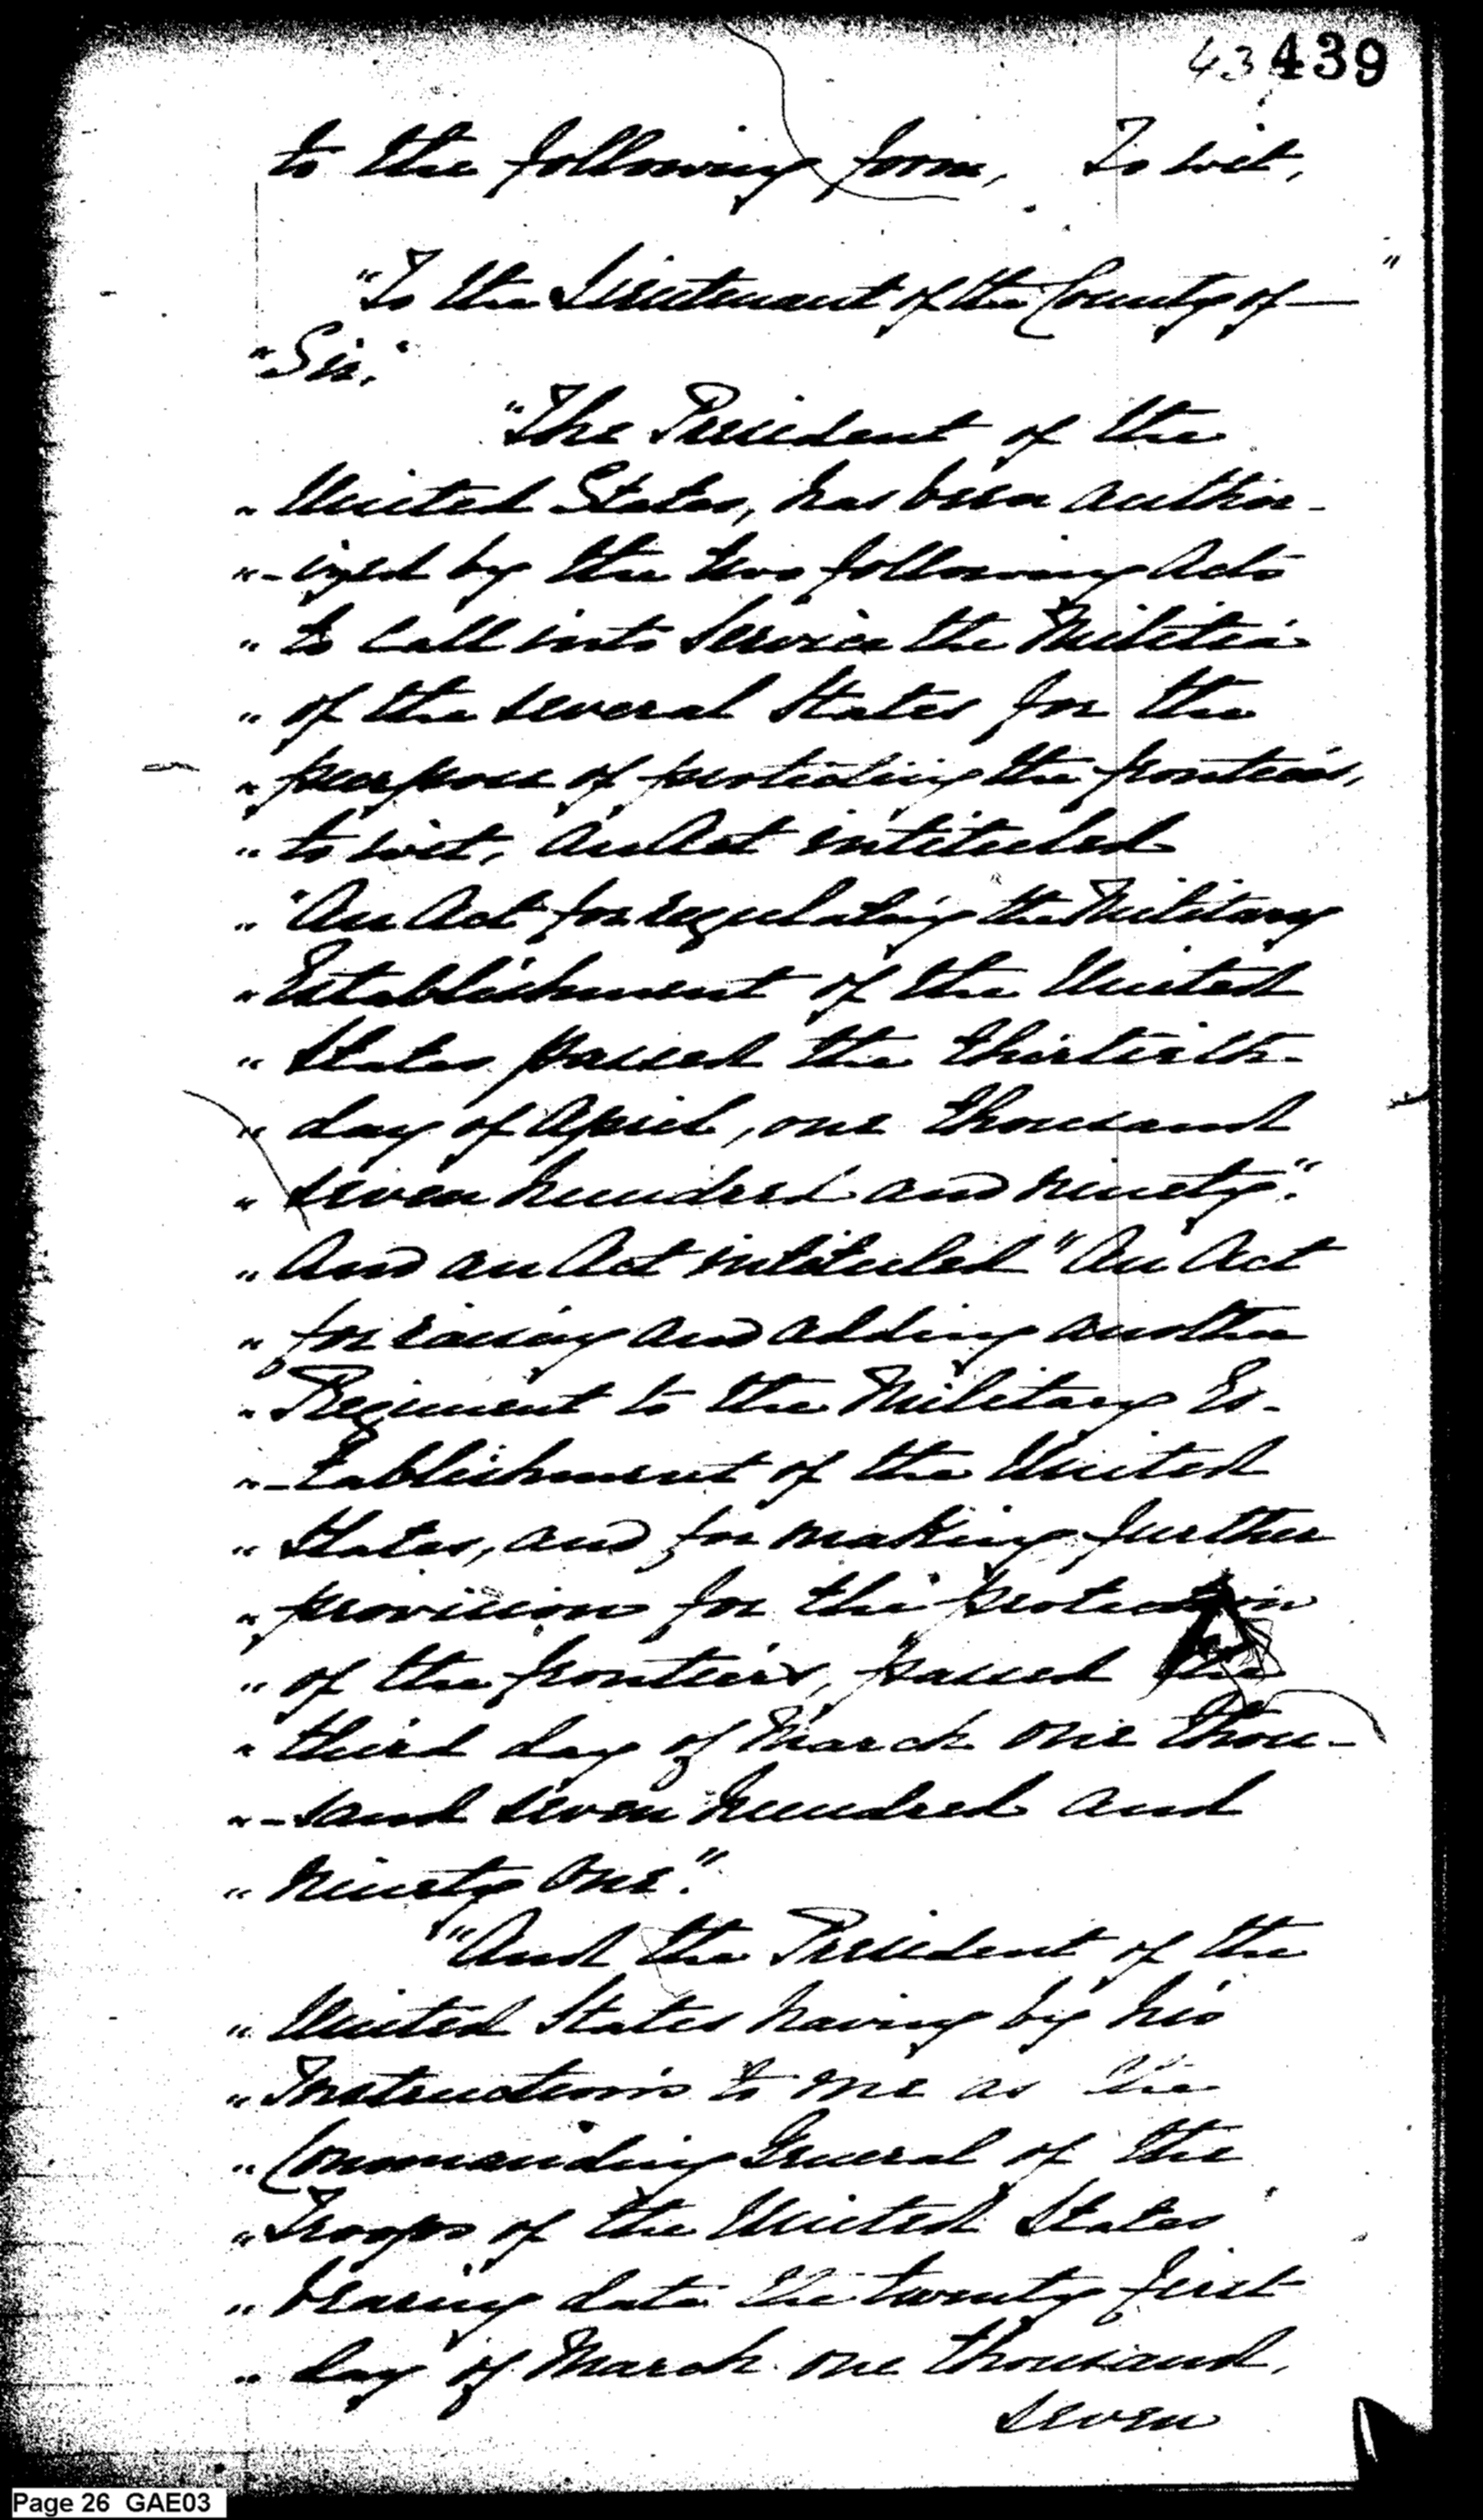 43 439
to the following form, To wit,
"To the Lieutenant of the County of — "
"Sir."
"The President of the
" United States, has been author-
"-ized by the two following Acts
" to call into Service the Militia
" of the several States for the
" purpose of protecting the frontiers,
" to wit, An Act intituled
" "An Act for regulating the Military
" Establishment of the United
" States passed the thirtieth
" day of April, one thousand
" seven hundred and ninety."
" And an Act intituled "An Act
" for raising and adding another
" Regiment to the Military Es-
"-tablishment of the United
" States, and for making further
" provision for the protection
" of the frontiers, passed the
" third day of March one thou-
"-sand seven hundred and
" ninety one."
"And the President of the
" United States having by his
" Instructions to me as the
" Commanding General of the
" Troops of the United States
" bearing date the twenty first
" day of March one thousand,
seven
Page 26 GAE03